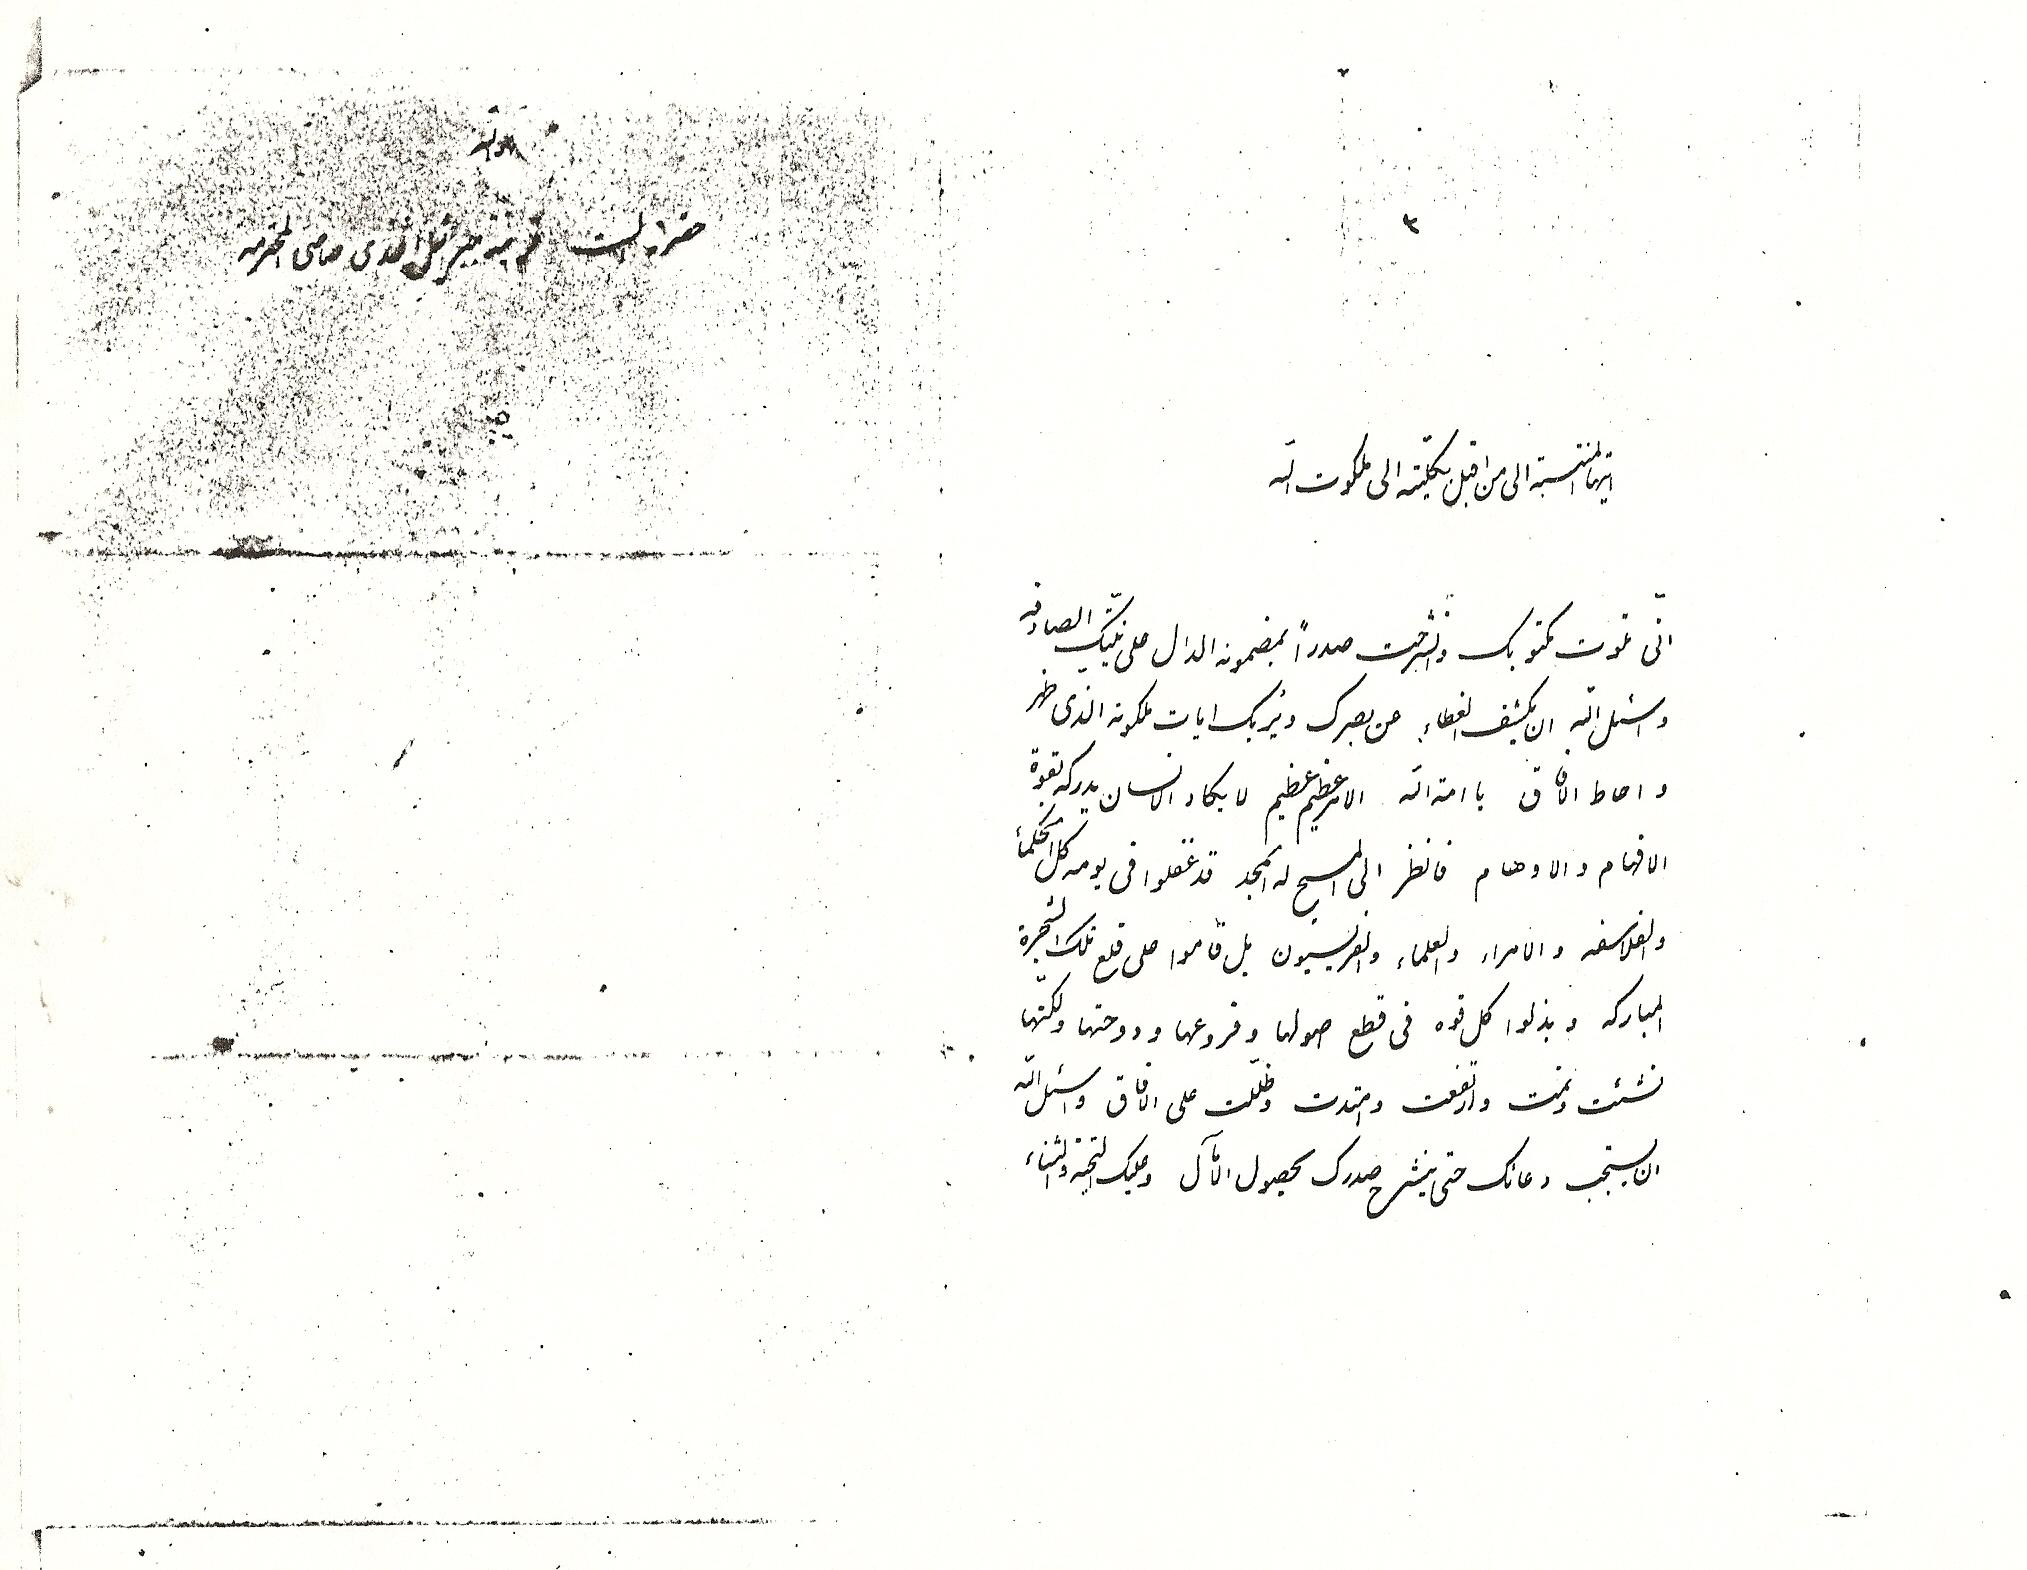 ٣
ايتها المنتسبة الى من اقبل بكليته الى ملكوت الله
انّى تلوت مكتوبك وانشرحت صدراً بمضمونه الدال على نيّتك الصادقه
واسئل الله ان يكشف الغطاء عن بصرك ويُريك ايات ملكوته الذى ظهر
واحاط الافاق يا امة الله الامر عظيم عظيم لا يكاد الانسان يدركه بقوة
الافهام والاوهام فانظر الى المسيح له المجد قد غفلوا فى يومه كل الحكماء
والفلاسفه والامراء والعلماء والفريسيون بل قاموا على قلع تلك الشجرة
المباركه وبذلوا كل قوه فى قطع اصولها وفروعها ودوحتها ولكنّها
نشئت ونمت وارتفعت وامتدت وظلّت على الافاق واسئل الله
ان يستجيب دعائك حتى ينشرح صدرك بحصول الآمال وعليك التحيّة والثناء
هو الله
حضرة الست قرينة جبرئيل افندى المحترمه